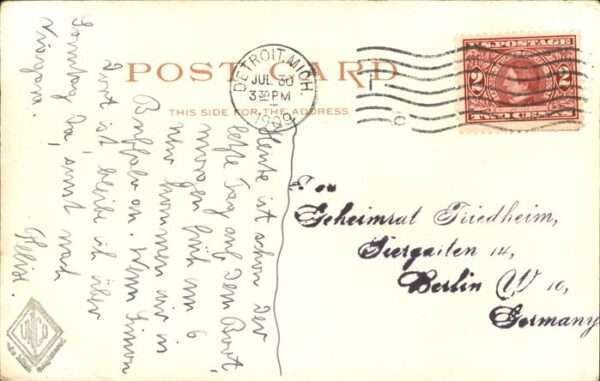 POST CARD
THIS SIDE FOR THE ADDRESS
DETROIT, MICH.
JUL 30
3 30 PM
1909
U.S. POSTAGE
2 2
TWO CENTS
Heute ist schon der
letzte Tag auf dem Boot,
morgen früh um 6
Uhr kommen wir in
Buffalo an. Wenn Simon
dort ist, bleibe ich über
Sonntag da, sonst nach
Niagara.
Felix.
Frau
Geheimrat Friedheim,
Tiergarten 14,
Berlin W 10,
Germany